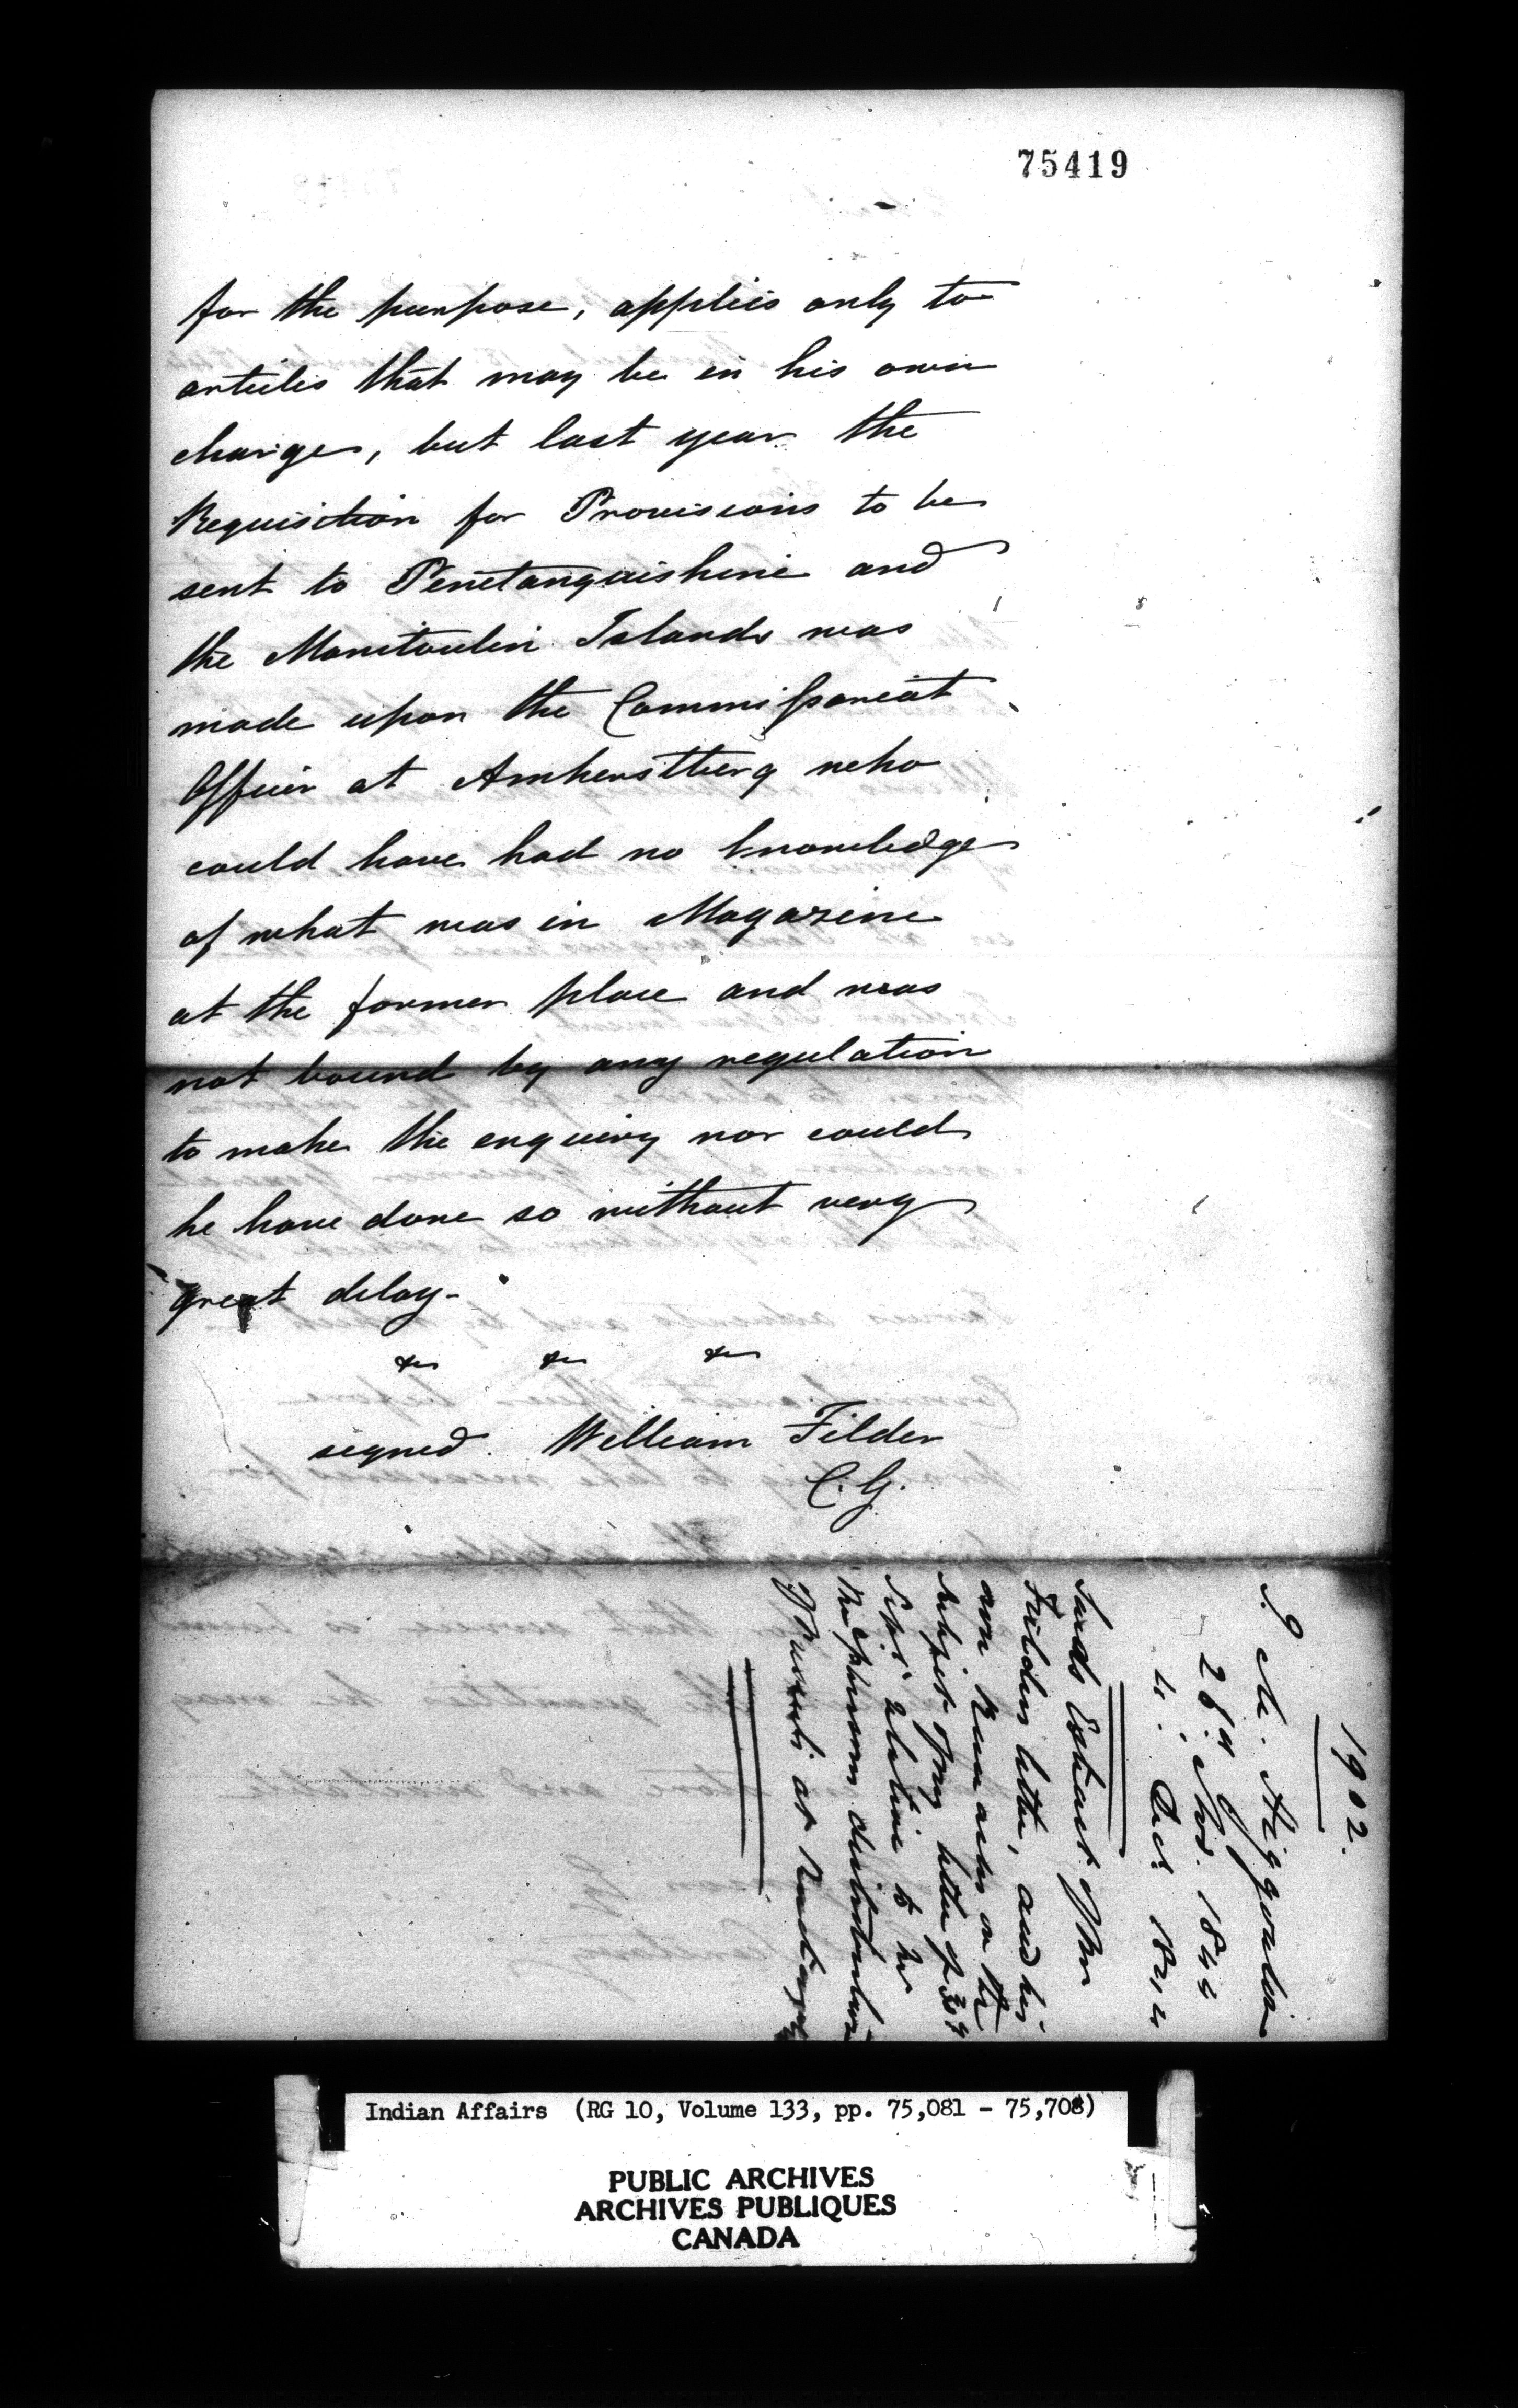 75419
for the purpose, applies only to
articles that may be in his own
charge, but last year the
Requisition for Provisions to be
sent to Penetanguishine and
the Manitoulin Islands was
made upon the Commissariat
Officer at Amherstberg who
could have had no knowledge
of what was in Magazine
at the former place and was
not bound by any regulation
to make the enquiry nor could
he have done so without very
great delay-
&c &c &c
signed William Filder
C.G.
1902.
J. M. Higginson
28th Nov. 1844
4. Dec. 1844
Sends Extract of Mr
Fielders letter, and his
own Remarks on the
subject of my letter of 30th
Sepr. relative to the
distribution
of Presents at
Indian Affairs (RG 10, Volume 133, pp. 75,081 - 75,708)
PUBLIC ARCHIVES
ARCHIVES PUBLIQUES
CANADA